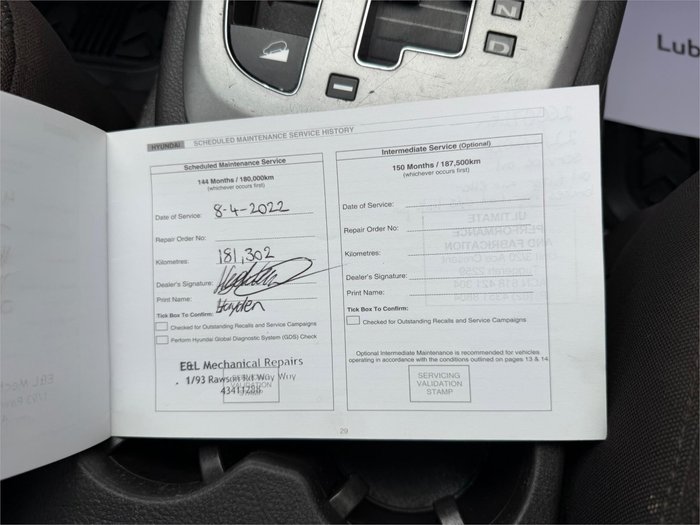 N
D
Lub
HYUNDAI SCHEDULED MAINTENANCE SERVICE HISTORY
Scheduled Maintenance Service
144 Months / 180,000km
(whichever occurs first)
Date of Service: 8-4-2022
Repair Order No:
Kilometres: 181,302
Dealer's Signature:
Print Name: Hayden
Tick Box To Confirm:
Checked for Outstanding Recalls and Service Campaigns
Perform Hyundai Global Diagnostic System (GDS) Check
E&L Mechanical Repairs
1/93 Rawson Rd Woy Woy
43411288
VALIDATION
STAMP
Intermediate Service (Optional)
150 Months / 187,500km
(whichever occurs first)
Date of Service:
Repair Order No:
Kilometres:
Dealer's Signature:
Print Name:
Tick Box To Confirm:
Checked for Outstanding Recalls and Service Campaigns
Optional Intermediate Maintenance is recommended for vehicles
operating in accordance with the conditions outlined on pages 13 & 14.
SERVICING
VALIDATION
STAMP
29